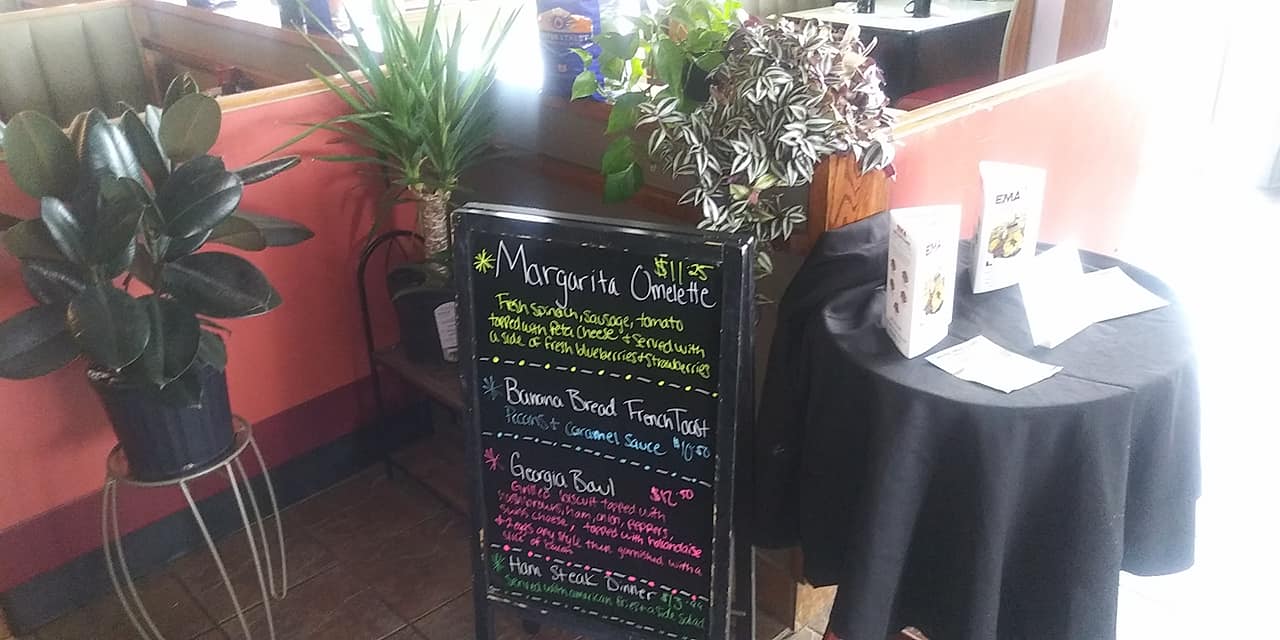 Margarita Omelette $11.25
Fresh spinach, sausage, tomato
topped with feta cheese + served with
a side of fresh blueberries + strawberries
Banana Bread French Toast
Pecans + caramel sauce $10.50
Georgia Bowl $12.50
Grilled biscuit topped with
hashbrowns, ham, onion, peppers,
swiss cheese, topped with hollandaise
+ 2 eggs any style then garnished with a
slice of
Ham Steak Dinner
Served with american fries + a side salad
EMA
EMA